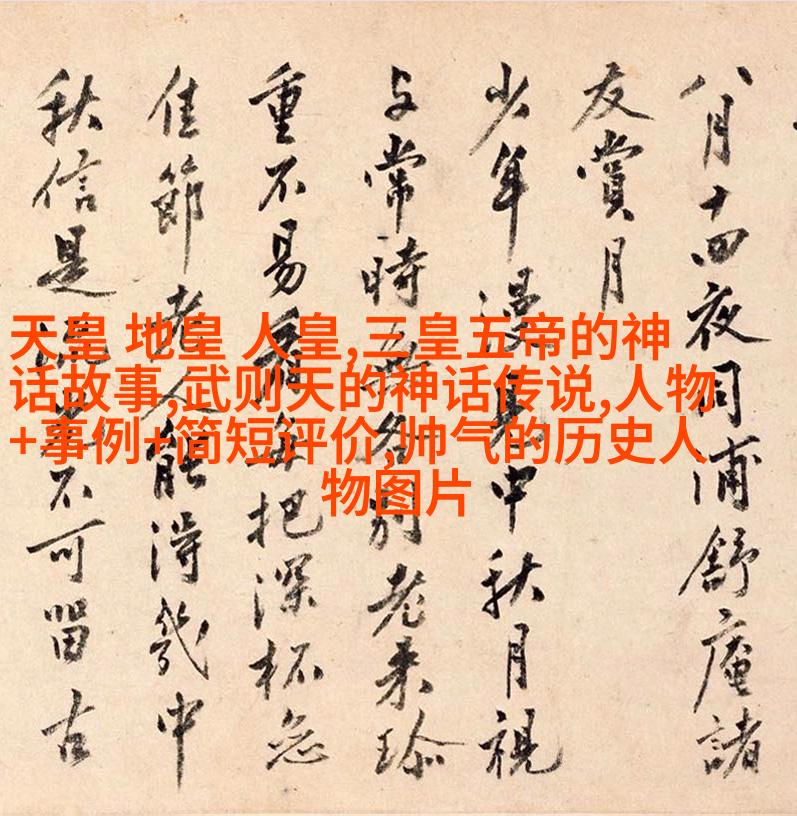 天皇 地皇 人皇,三皇五帝的神
话故事,武则天的神话传说,人物
+事例+简短评价,帅气的历史人
物图片
八月十四夜同浦舒庵諸
友賞月
少年漫見中秋月視
与常時無各別老来珍
重不易看每把深杯
佳節老人能得幾中
秋信是流光不可留古